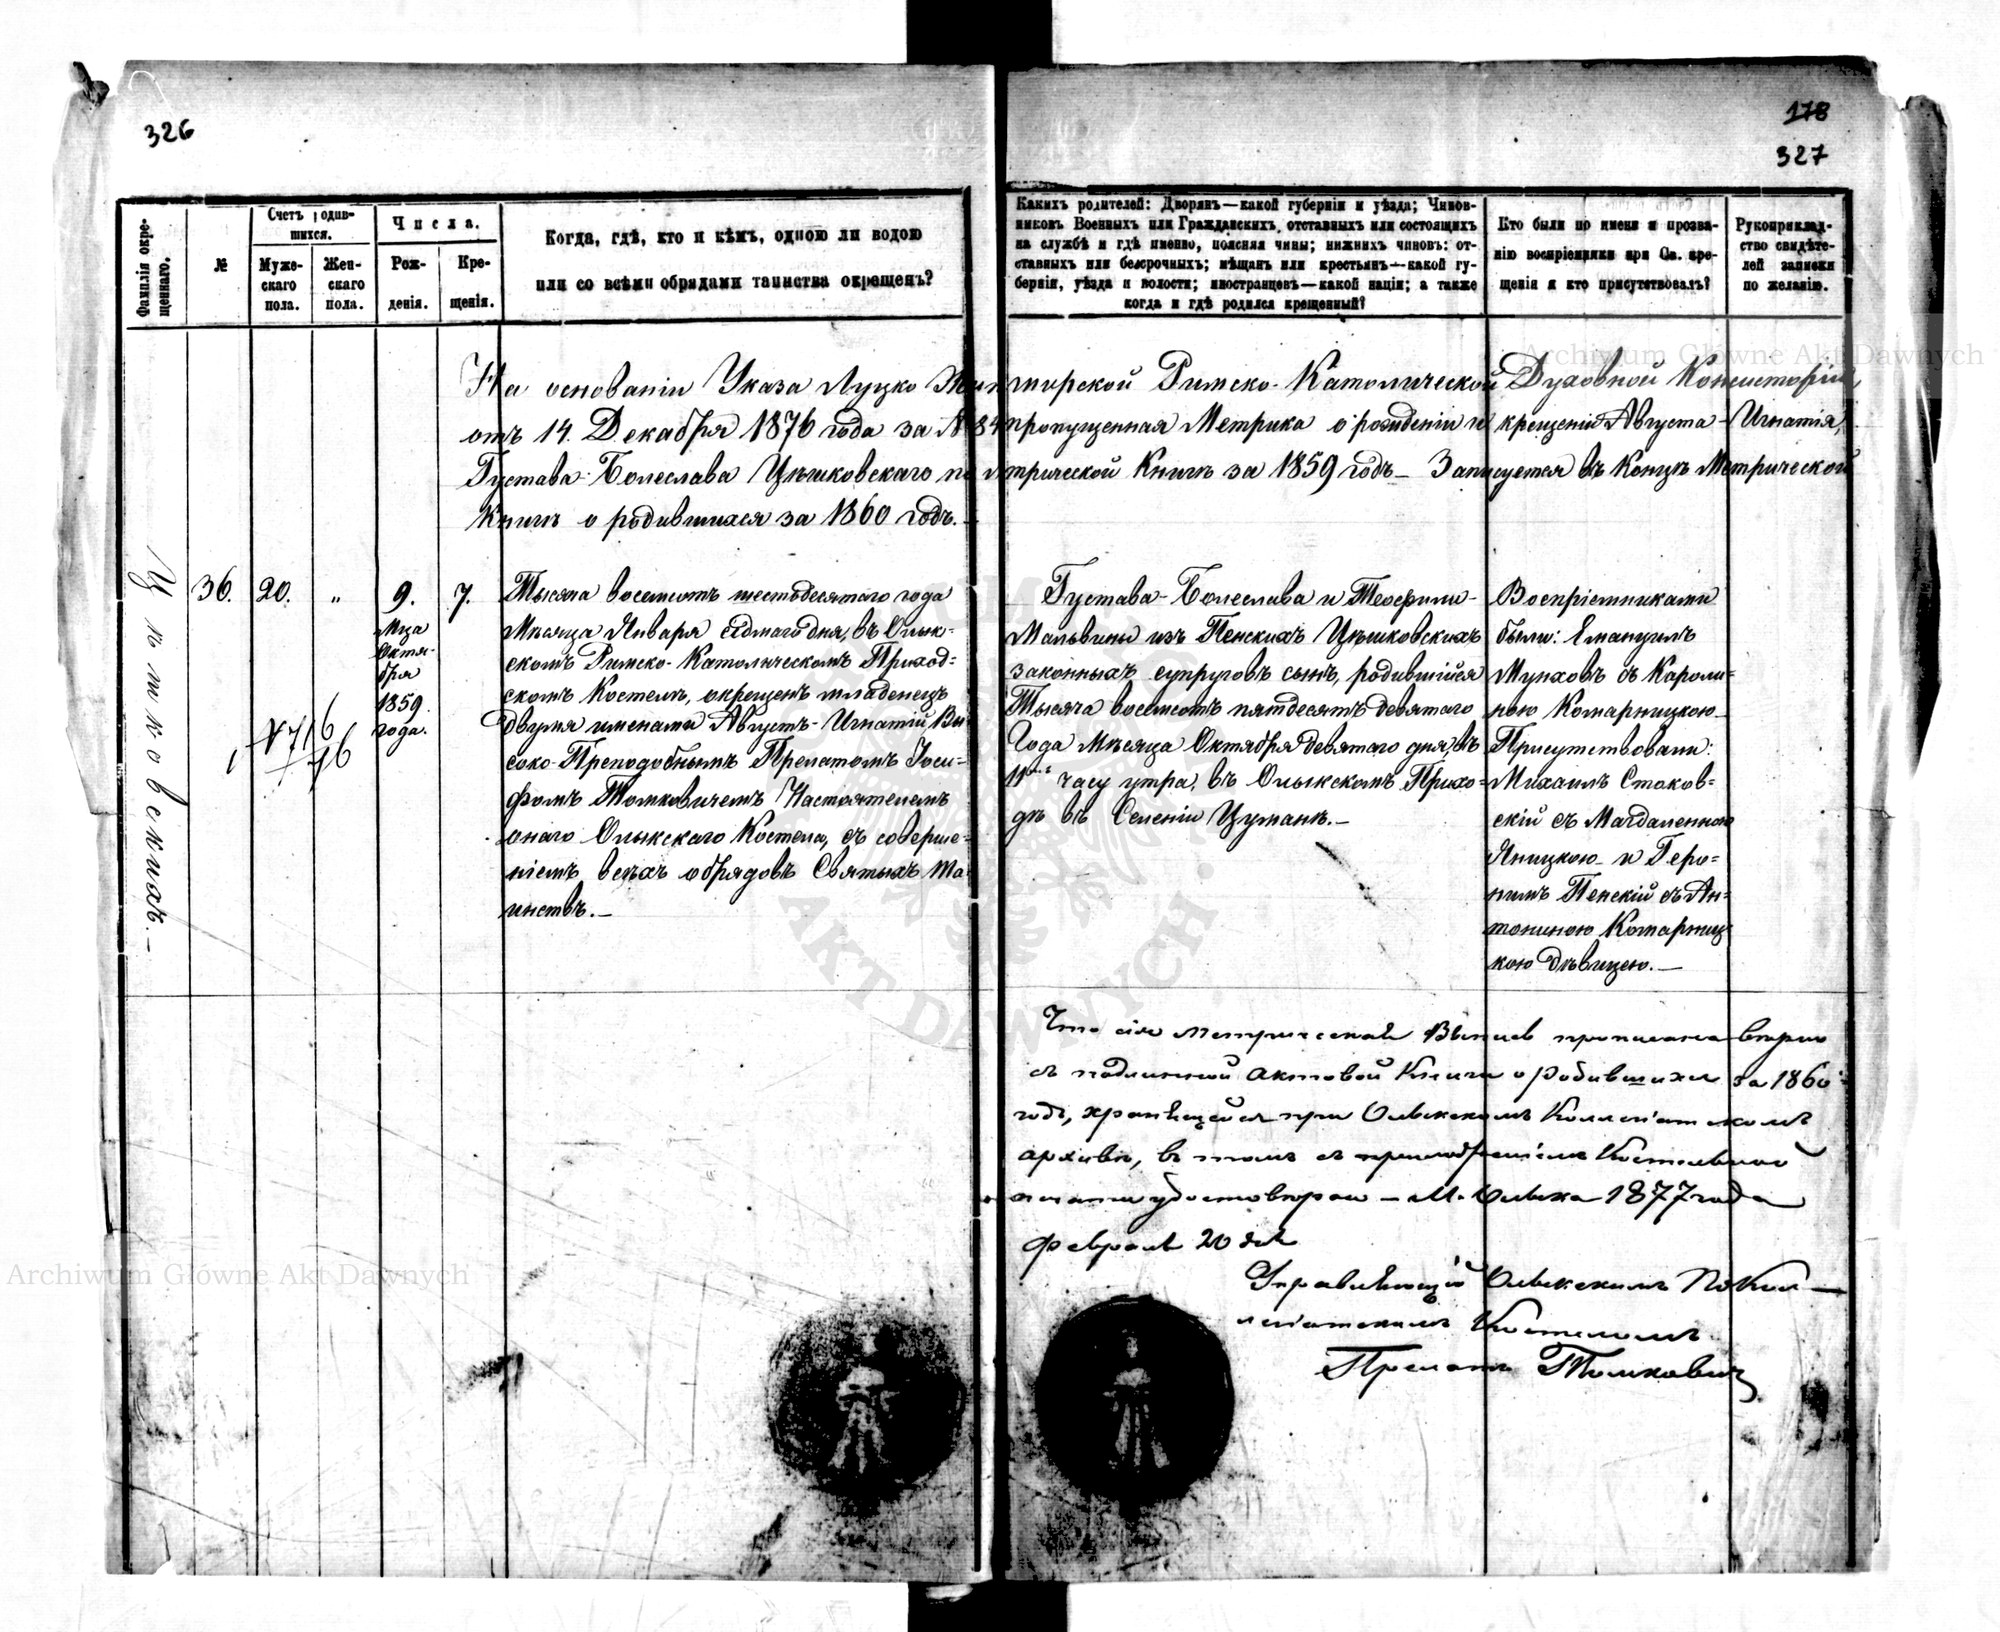 326
178
327
Фамилія окре-
щеннаго.
№
Счетъ родив-
шихся.
Муже-
скаго
пола.
Жен-
скаго
пола.
Числа.
Рож-
денія.
Кре-
щенія.
Когда, гдѣ, кто и кѣмъ, одною ли водою
или со всѣми обрядами таинства окрещенъ?
Какихъ родителей: Дворянъ—какой губерніи и уѣзда; Чинов-
никовъ Военныхъ или Гражданскихъ, отставныхъ или состоящихъ
на службѣ и гдѣ именно, поясняя чины; нижнихъ чиновъ: от-
ставныхъ или безсрочныхъ; мѣщанъ или крестьянъ—какой гу-
берніи, уѣзда и волости; иностранцевъ—какой націи; а также
когда и гдѣ родился крещенный?
Кто были по имени и прозва-
нію воспріемники при Св. кре-
щеніи и кто присутствовалъ?
Рукоприклад-
ство свидѣте-
лей записки
по желанію.
На основаніи Указа Луцко Житомирской Римско-Католической Духовной Консисторіи,
отъ 14. Декабря 1876 года за № 84 пропущенная Метрика о рожденіи и крещеніи Августа-Игнатія,
Густава-Болеслава Цѣшковскаго по Метрической Книгѣ за 1859 годъ— Записуется въ Концѣ Метрической
Книги о родившихся за 1860 годъ.—
Цѣшковскихъ.—
36.
20.
"
9.
Мца
Октя-
бря
1859
года.
7.
Тысяча восемсотъ шестдесятаго года
Мѣсяца Января седмаго дня, въ Олык-
скомъ Римско-Католическомъ Приход-
скомъ Костелѣ, окрещенъ младенецъ
двумя именами Августъ-Игнатій Вы-
соко-Преподобнымъ Прелатомъ Іоси-
фомъ Томковичемъ Настоятелемъ
онаго Олыкскаго Костела, съ соверше-
ніемъ всѣхъ обрядовъ Святыхъ Та-
инствъ.—
№ 716
76
Густава-Болеслава и Теофили-
Мальвины изъ Пенскихъ Цѣшковскихъ
законныхъ супруговъ сынъ, родившійся
Тысяча восемсотъ пятдесятъ девятаго
Года Мѣсяца Октября девятаго дня, въ
11мъ часу утра, въ Олыкскомъ Прихо-
дѣ въ Селеніи Цуманѣ.—
Воспріемниками
были: Емануилъ
Мунховъ съ Кароли-
ною Комарницкою—
Присутствовали:
Михаилъ Стоков-
скій съ Магдаленною
Яницкою— и Геро-
нимъ Пенскій съ Ан-
тониною Комарниц-
кою дѣвицею.—
Что сія метрическая Выпись прописана вѣрно
съ подлинной актовой Книги о родившихся за 1860
годъ, хранящейся при Олыкскомъ Коллегіатскомъ
архивѣ, въ томъ съ приложеніемъ Костельной
печати удостовѣряю — М. Олыка 1877 года
Февраля 20 дня
Управляющій Олыкскимъ По Кол—
легіатскимъ Костеломъ
Прелатъ Томковичъ
Archiwum Główne Akt Dawnych
Archiwum Główne Akt Dawnych
AKT DAWNYCH